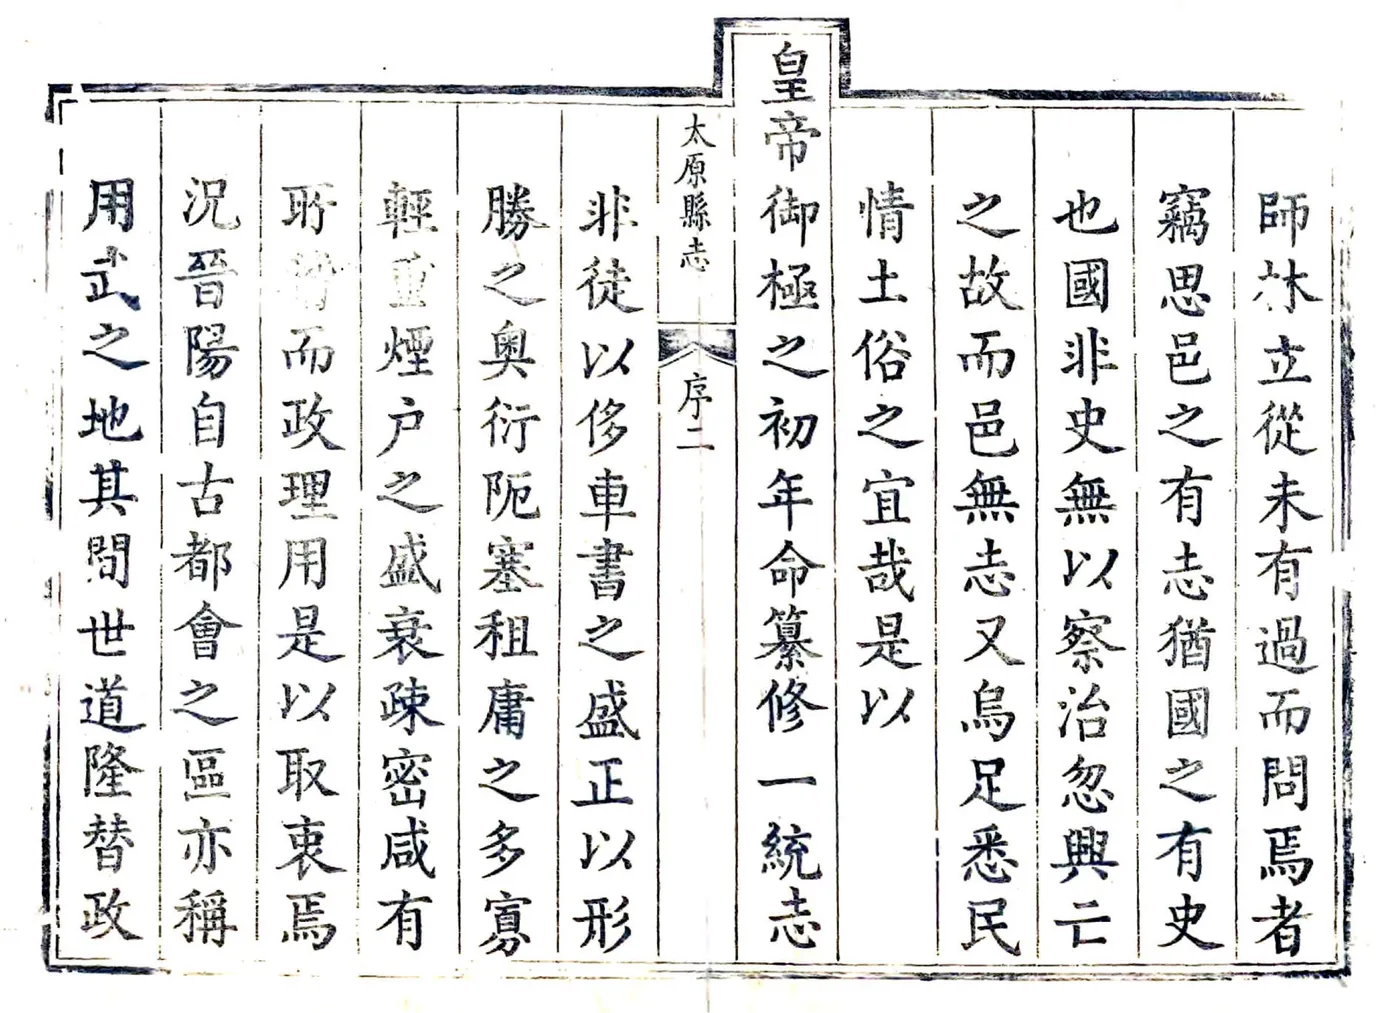 師林立從未有過而問焉者
竊思邑之有志猶國之有史
也國非史無以察治忽興亡
之故而邑無志又烏足悉民
情土俗之宜哉是以
皇帝御極之初年命纂修一統志
太原縣志
序二
非徒以侈車書之盛正以形
勝之奧衍阨塞租庸之多寡
輕重煙户之盛衰疎密咸有
所 而政理用是以取衷焉
況晉陽自古都會之區亦稱
用武之地其間世道隆替政